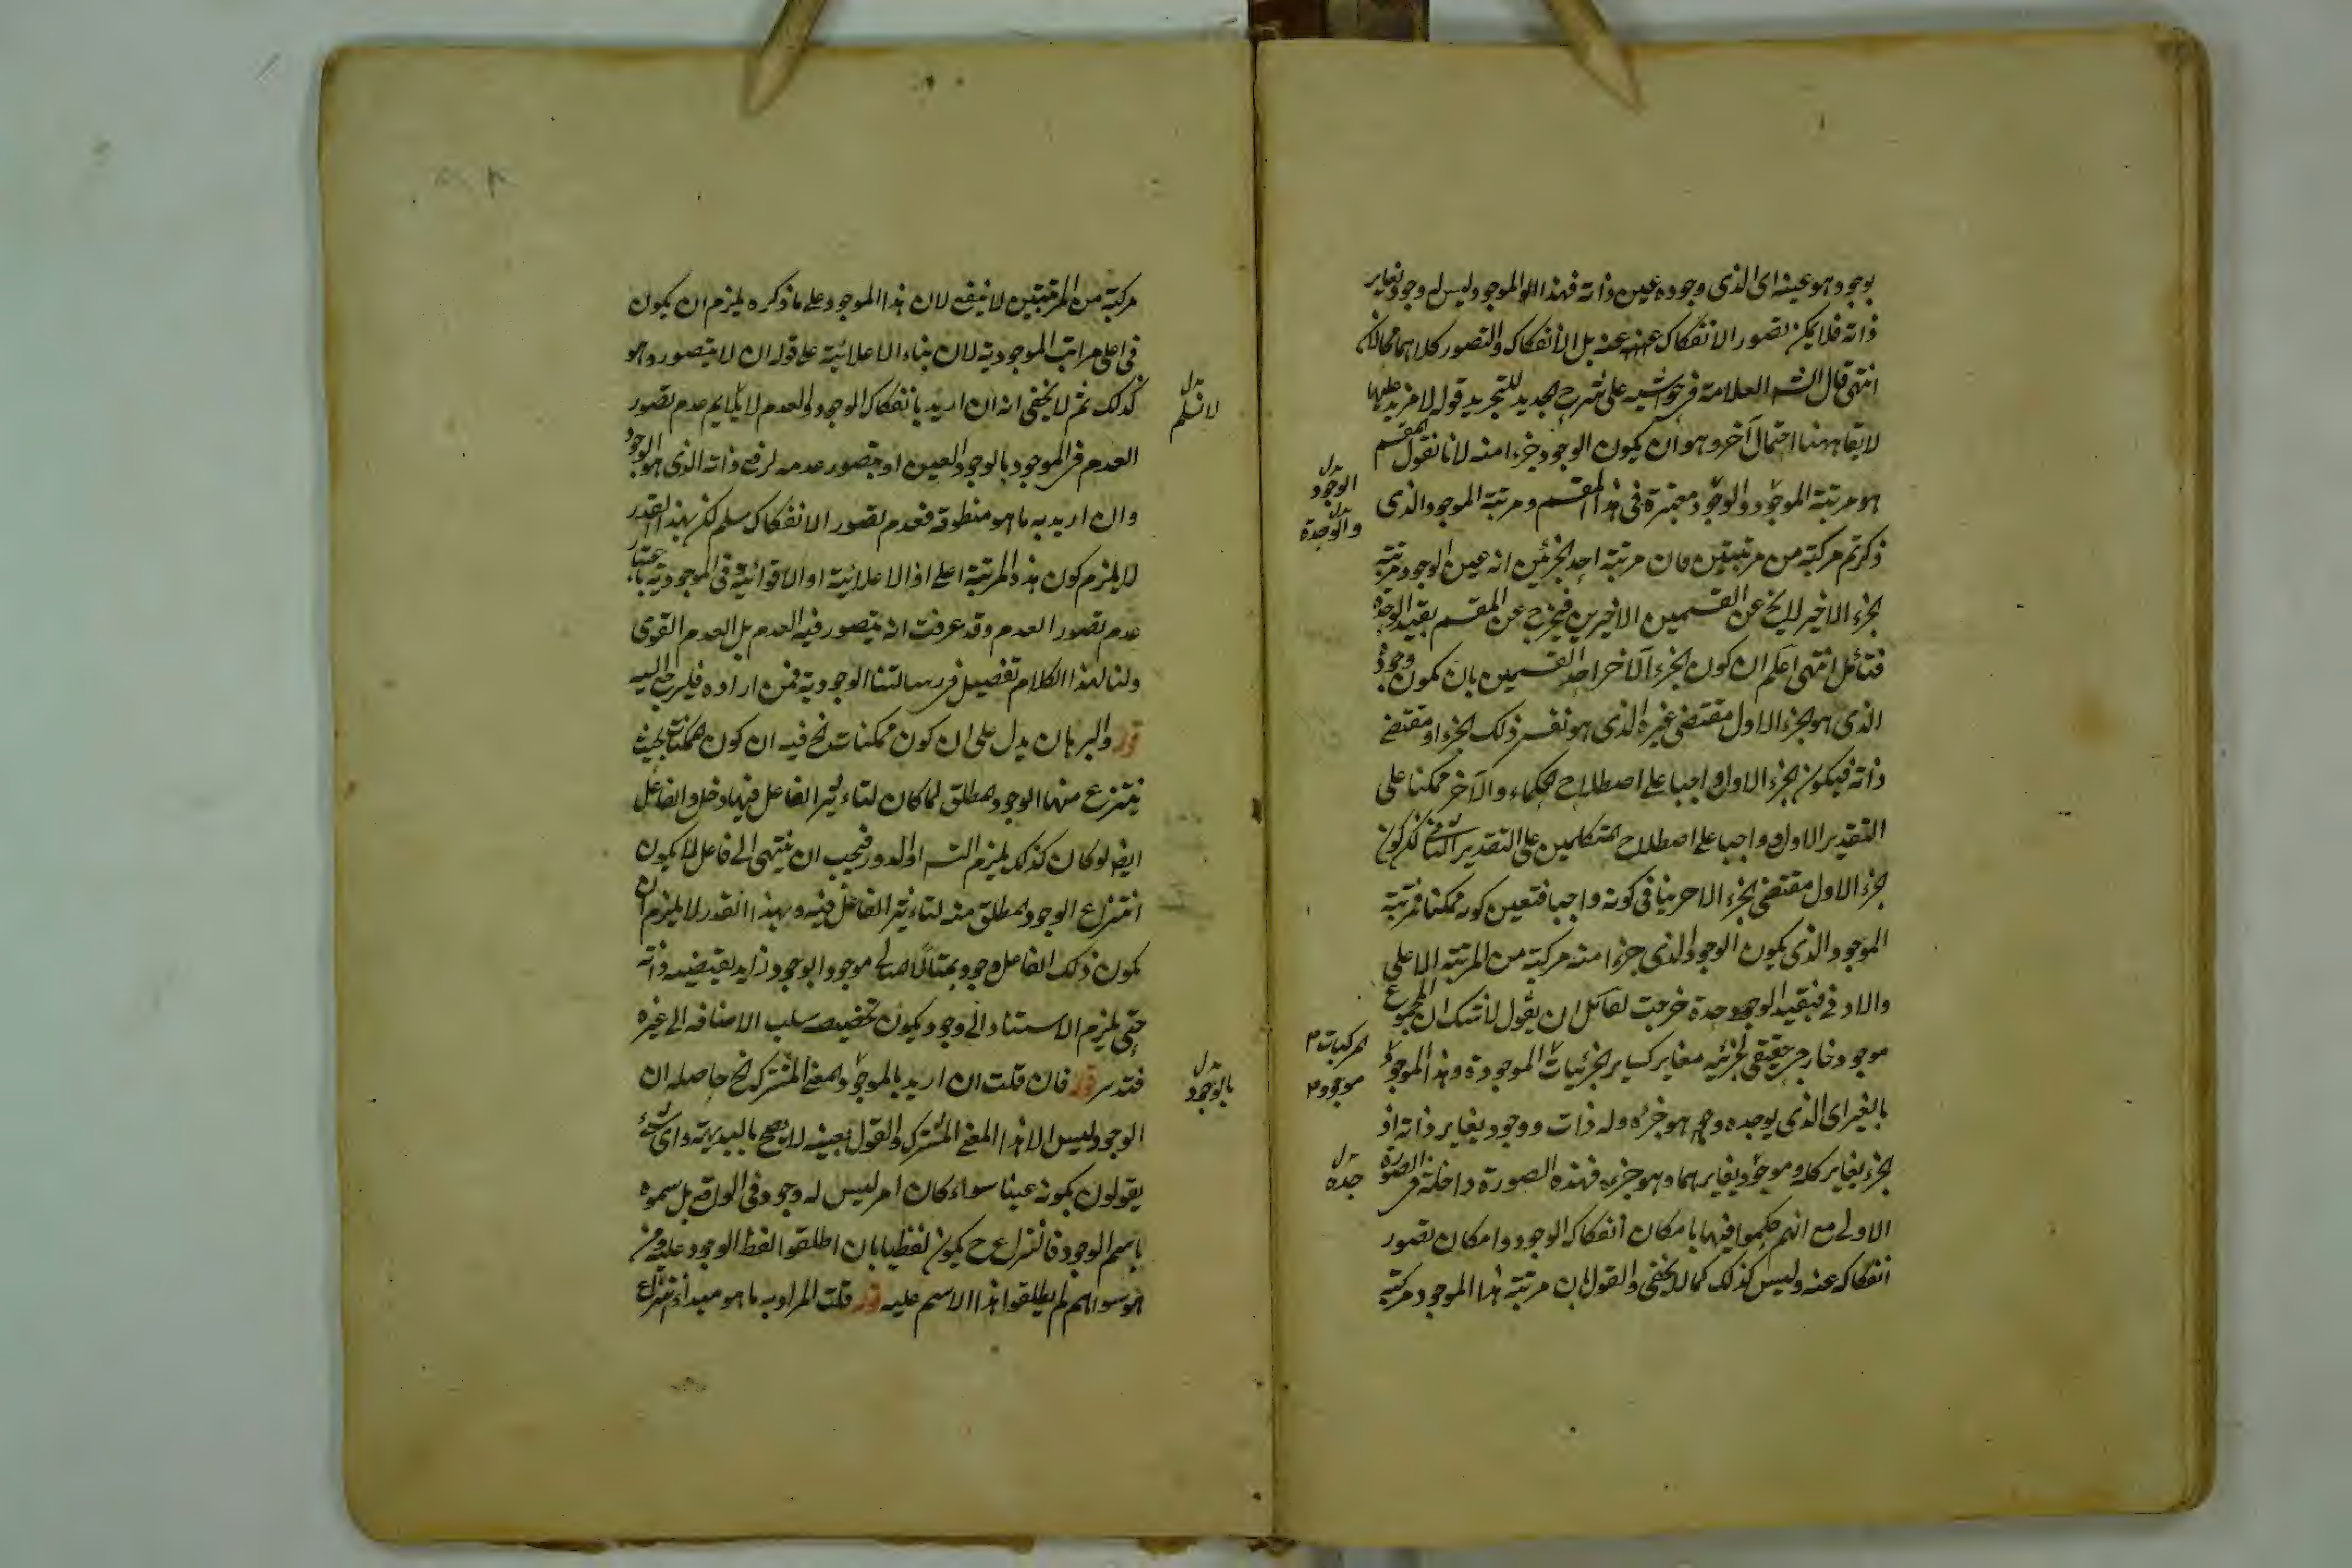 بوجود هو عينه اى الذى وجوده عين ذاته فهذا الموجود ليس له وجود يغاير
ذاته فلا يمكن تصور الانفكاك عنه بل الانفكاك والتصور كلاهما محالان
انتهى قال الش العلامة فى حواشيه على الشرح الجديد للتجريد قوله لا مزيد عليها
لا يقا ههنا احتمال آخر وهو ان يكون الوجود جزءا منه لانا نقول المقسم
هو مرتبة الموجود والوجود معتبرة فى هذا المقسم ومرتبة الموجود الذى
ذكرتم مركبة من مرتبتين فان مرتبة احد الجزئين انه عين الوجود ومرتبة
الجزء الاخير لا يخ عن القسمين الاخيرين فيخرج عن المقسم بقيد الوحدة
فتأمل انتهى اعلم ان كون الجزء الآخر احد القسمين بان يكون وجود
الذى هو الجزء الاول مقتضى غيره الذى هو نفس ذلك الجزء او مقتضى
ذاته فيكون الجزء الاول واجبا على اصطلاح الحكماء والآخر ممكنا على
التقدير الاول وواجبا على اصطلاح المتكلمين على التقدير الثانى لكن كون
الجزء الاول مقتضى الجزء الاخر ينافى كونه واجبا فتعين كونه ممكنا فمرتبة
الموجود الذى يكون الوجود الذى جزءا منه مركبة من المرتبة الاعلى
والادنى فبقيد الوحدة خرجت لقائل ان يقول لا شك ان المجموع
موجود خارجى حقيقى لجزئيه مغاير كساير الجزئيات الموجودة وهذا الموجود
بالغير اى الذى يوجده هو جزؤه وله ذات ووجود يغاير ذاته اذ
الجزء يغاير كله وموجود يغايرهما وهو جزؤه فهذه الصورة داخلة فى الصورة
الاولى مع انهم حكموا فيها بامكان انفكاك الوجود وامكان تصور
انفكاكه عنه وليس كذلك كما لا يخفى والقول بان مرتبة هذا الموجود مركبة
الوجود
والوحدة
المركبات
موجود
جده
مركبة من المرتبتين لا ينفع لان هذا الموجود على ما ذكره يلزم ان يكون
فى اعلى مراتب الموجودية لان بناء الاعلائية على قوله ان لا يتصور وهو
كذلك ثم لا يخفى انه ان اريد بانفكاك الوجود والعدم لا يلايم عدم تصور
العدم فى الموجود بالوجود العين او يتصور عدمه لرفع ذاته الذى هو الوجود
وان اريد به ما هو منطوقه فعدم تصور الانفكاك مسلم لكن بهذا القدر
لا يلزم كون هذه المرتبة اعلى اذ الاعلائية او الاقوائية فى الموجودية باعتبار
عدم تصور العدم وقد عرفت انه يتصور فيه العدم بل العدم القوى
ولنا لهذا الكلام تفصيل فى رسالتنا الوجودية فمن اراده فليرجع اليه
قوله والبرهان يدل على ان كون ممكنات الخ فيه ان كون الممكنات بحيث
ينتزع منها الوجود المطلق لما كان لتاءثير الفاعل فيها دخل والفاعل
ايضا لو كان كذلك يلزم التس او الدور فيجب ان ينتهى الى فاعل لا يكون
انتزاع الوجود المطلق منه لتاءثير الفاعل فيه وبهذا القدر لا يلزم ان
يكون ذلك الفاعل وجود موجودا بوجود زايد يقتضيه ذاته
حتى يلزم الاستناد الى وجود يكون تخصيصه سلب الاضافه الى غيره
فتدبر قوله فان قلت ان اريد بالموجود المعنى المشترك الخ حاصله ان
الوجود ليس الا هذا المعنى المشترك والقول بعينه لا يصح بالبديهة واى شئ
يقولون بكونه عينا سواء كان امر ليس له وجود فى الواقع بل سموه
باسم الوجود فالنزاع ح يكون لفظيا بان اطلقوا لفظ الوجود عليه ومن
هو سواهم لم يطلقوا هذا الاسم عليه قوله قلت المراد به ما هو مبدأ انتزاع
لا نسلم
بالوجود